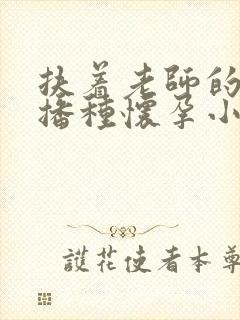 扶着老師的
播種懷孕小
護花使者本尊